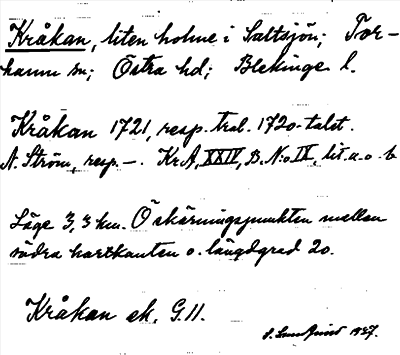 Kråkan, liten holme i Saltsjön; Tor-
hamn sn; Östra hd; Blekinge l.
Kråkan 1721, resp. tral. 1720-talet.
N. Ström, resp. —. Kr.A, XXIV, B. N:o IX, lit. a. o. b
Läge 3,3 km. Ö skärningspunkten mellan
södra kartkanten o. längdgrad 20.
Kråkan ek. G.11.
1927.